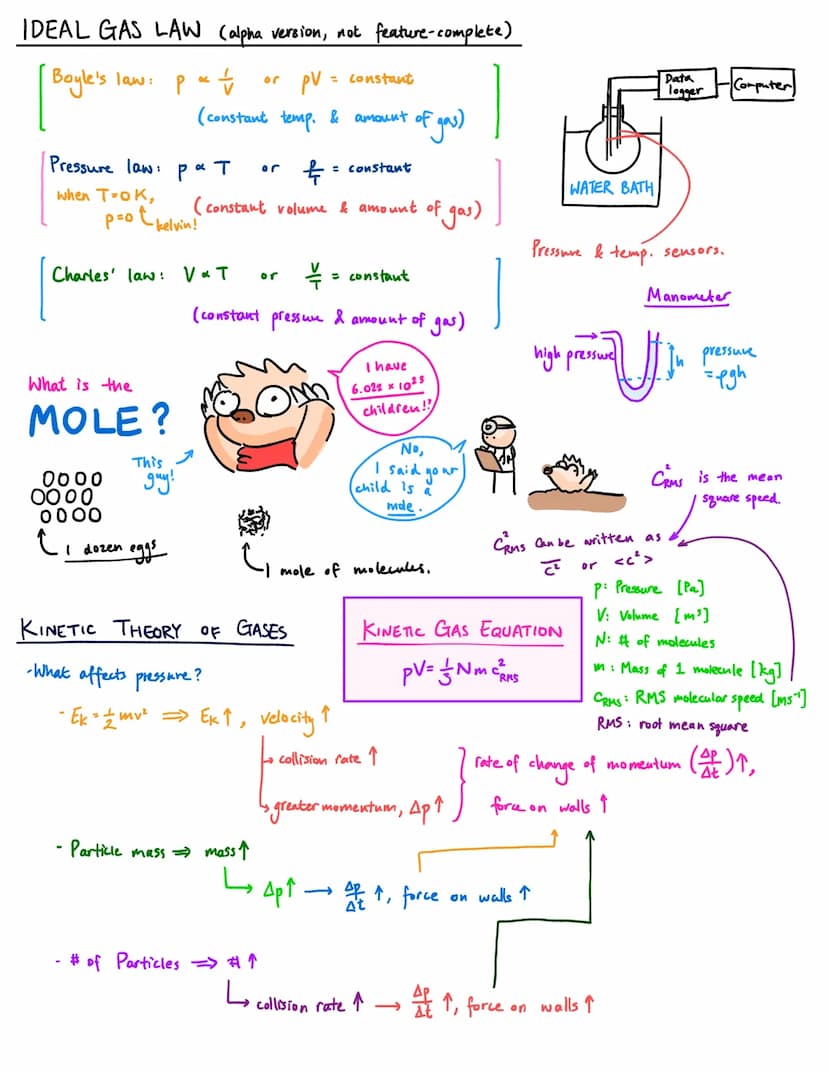 IDEAL GAS LAW (alpha version, not feature-complete)
Boyle's law: p ∝ 1/V or pV = constant
(constant temp. & amount of gas)
Pressure law: p ∝ T or p/T = constant
when T=0K,
p=0
kelvin!
(constant volume & amount of gas)
Charles' law: V ∝ T or V/T = constant
(constant pressure & amount of gas)
Data logger
Computer
WATER BATH
Pressure & temp. sensors.
Manometer
high pressure
h
pressure
= ρgh
What is the
MOLE?
This
guy!
I have
6.022 × 10²³
children!!
No,
I said your
child is a
mole.
1 dozen eggs
1 mole of molecules.
C²RMS is the mean
square speed.
C²RMS can be written as
c̅² or <c²>
KINETIC THEORY OF GASES
KINETIC GAS EQUATION
pV = 1/3 N m c²RMS
p: Pressure [Pa]
V: Volume [m³]
N: # of molecules
m: Mass of 1 molecule [kg]
CRMS: RMS molecular speed [ms⁻¹]
RMS: root mean square
-What affects pressure?
- Ek = 1/2 mv² ⇒ Ek ↑, velocity ↑
↳ collision rate ↑
↳ greater momentum, Δp ↑
rate of change of momentum (Δp/Δt) ↑,
force on walls ↑
- Particle mass ⇒ mass ↑
↳ Δp ↑ → Δp/Δt ↑, force on walls ↑
- # of Particles ⇒ # ↑
↳ collision rate ↑ → Δp/Δt ↑, force on walls ↑